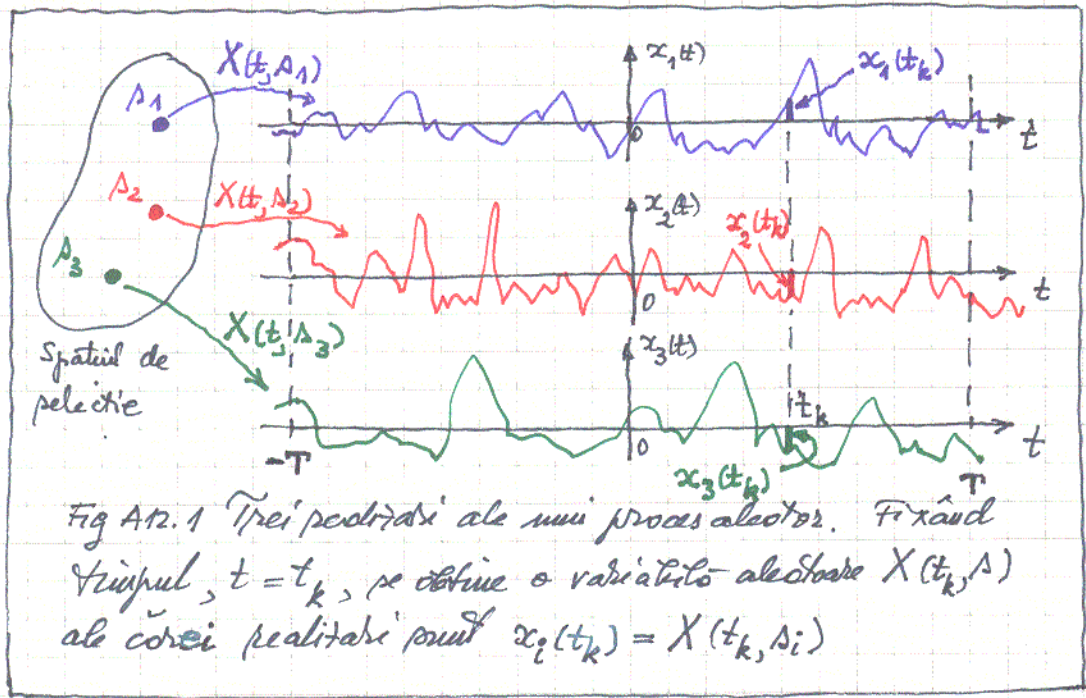 X(t, s₁)
x₁(t)
x₁(t_k)
s₁
0
t
s₂
X(t, s₂)
x₂(t)
x₂(t_k)
s₃
0
t
X(t, s₃)
x₃(t)
Spațiul de
selecție
t_k
0
t
-T
x₃(t_k)
T
Fig A12.1 Trei realizări ale unui proces aleator. Fixând
timpul, t = t_k, se obține o variabilă aleatoare X(t_k, s)
ale cărei realizări sunt x_i(t_k) = X(t_k, s_i)